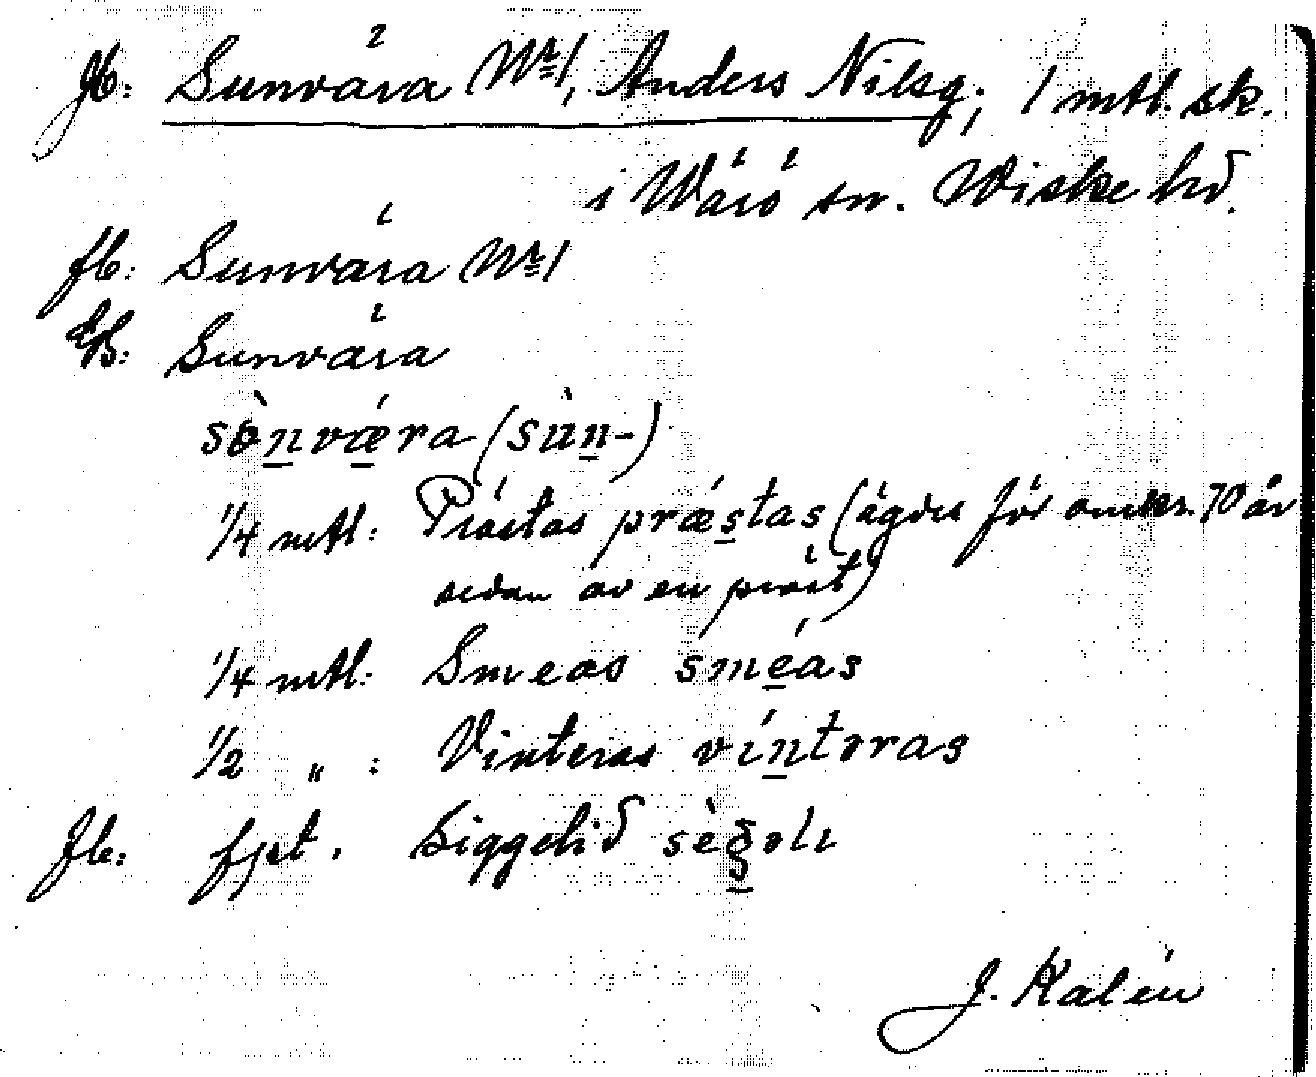 Jb: Sunvära Nr 1, Anders Nilsg; 1 mtl. sk.
i Wärö sn. Wiske hd.
fb: Sunvära Nr 1
EB: Sunvära
sònvǽra (sùn-)
1/4 mtl: Prästas prǽstas (ägdes för omkr. 70 år
sedan av en präst)
1/4 mtl: Smeas sméas
1/2 " : Vinteras víntəras
Jb: fpt. Siggelid
J. Kalén